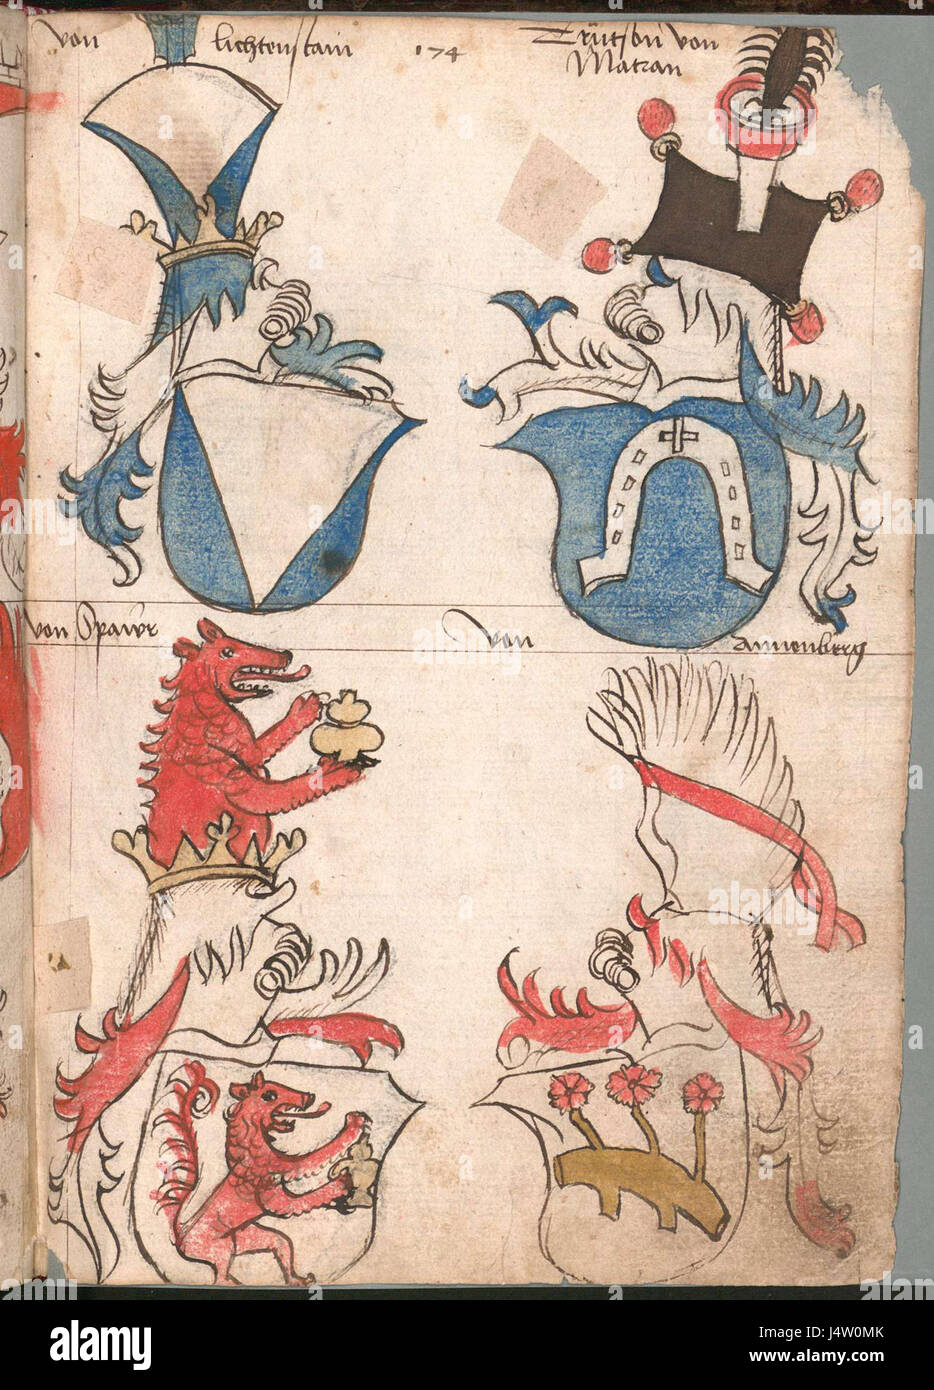 von lichtenstain 174
Trütson von
Matran
von Spawr
von Annenberg
a alamy stock photo
J4W0MK
www.alamy.com